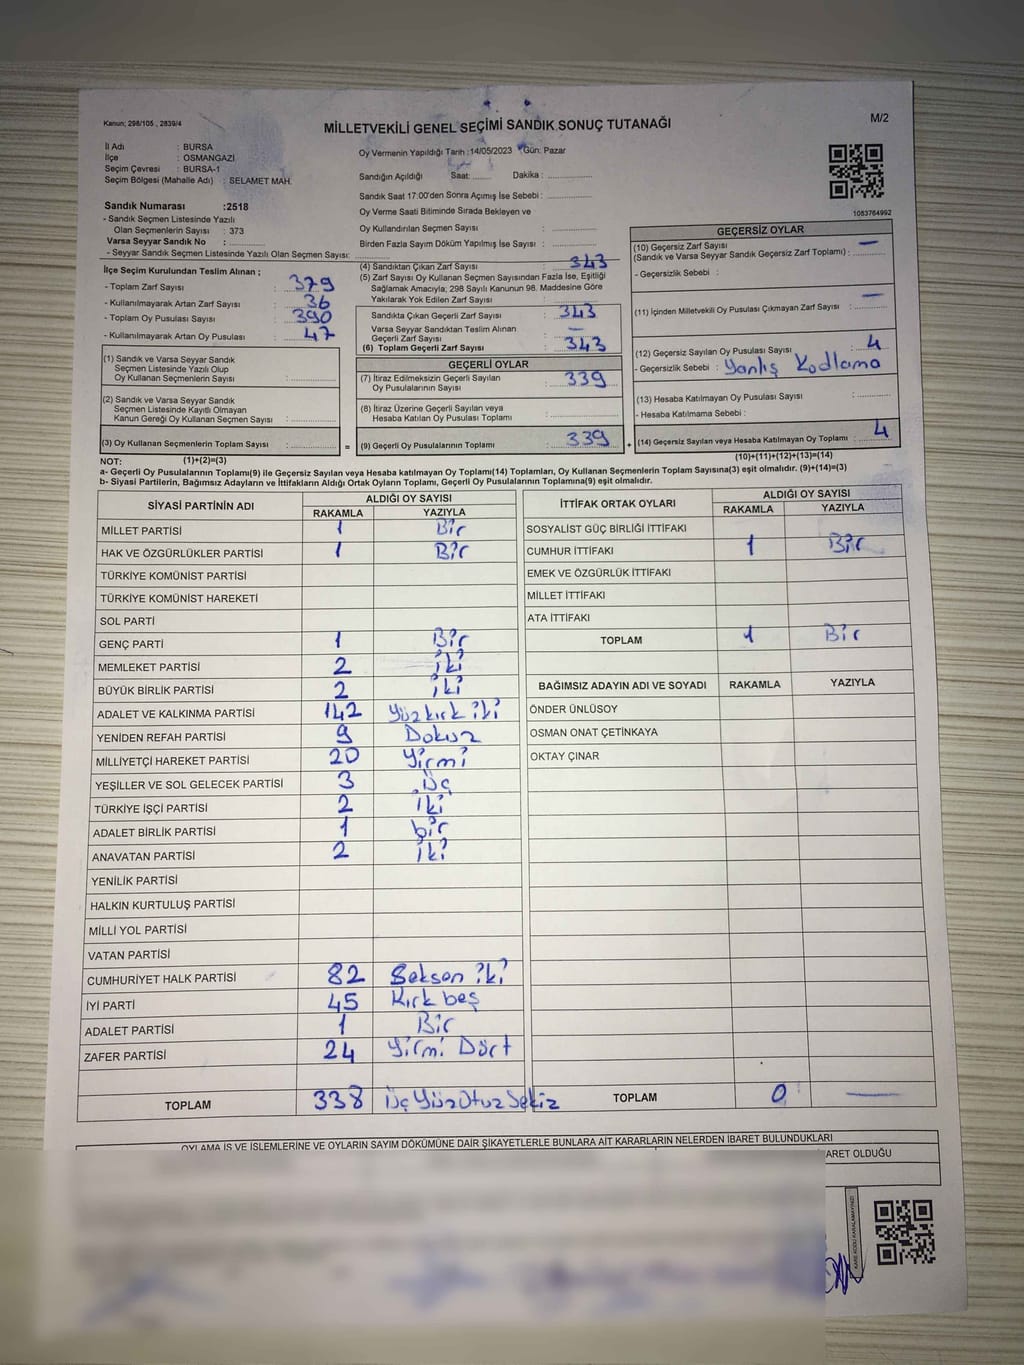 Kanun; 298/105 , 2839/4
MİLLETVEKİLİ GENEL SEÇİMİ SANDIK SONUÇ TUTANAĞI
M/2
İl Adı : BURSA
İlçe : OSMANGAZİ
Seçim Çevresi : BURSA-1
Seçim Bölgesi (Mahalle Adı) : SELAMET MAH.
Sandık Numarası :2518
- Sandık Seçmen Listesinde Yazılı
Olan Seçmenlerin Sayısı : 373
Varsa Seyyar Sandık No :
- Seyyar Sandık Seçmen Listesinde Yazılı Olan Seçmen Sayısı:
Oy Vermenin Yapıldığı Tarih :14/05/2023 Gün: Pazar
Sandığın Açıldığı Saat: Dakika :
Sandık Saat 17:00'den Sonra Açımış İse Sebebi :
Oy Verme Saati Bitiminde Sırada Bekleyen ve
Oy Kullandırılan Seçmen Sayısı :
Birden Fazla Sayım Döküm Yapılmış İse Sayısı :
1083764992
İlçe Seçim Kurulundan Teslim Alınan ;
- Toplam Zarf Sayısı : 379
- Kullanılmayarak Artan Zarf Sayısı : 36
- Toplam Oy Pusulası Sayısı : 390
- Kullanılmayarak Artan Oy Pusulası : 47
(1) Sandık ve Varsa Seyyar Sandık
Seçmen Listesinde Yazılı Olup
Oy Kullanan Seçmenlerin Sayısı :
(2) Sandık ve Varsa Seyyar Sandık
Seçmen Listesinde Kayıtlı Olmayan
Kanun Gereği Oy Kullanan Seçmen Sayısı :
(3) Oy Kullanan Seçmenlerin Toplam Sayısı :
(4) Sandıktan Çıkan Zarf Sayısı : 343
(5) Zarf Sayısı Oy Kullanan Seçmen Sayısından Fazla İse, Eşitliği
Sağlamak Amacıyla; 298 Sayılı Kanunun 98. Maddesine Göre
Yakılarak Yok Edilen Zarf Sayısı :
Sandıkta Çıkan Geçerli Zarf Sayısı : 343
Varsa Seyyar Sandıktan Teslim Alınan
Geçerli Zarf Sayısı : —
(6) Toplam Geçerli Zarf Sayısı : 343
GEÇERLİ OYLAR
(7) İtiraz Edilmeksizin Geçerli Sayılan
Oy Pusulalarının Sayısı : 339
(8) İtiraz Üzerine Geçerli Sayılan veya
Hesaba Katılan Oy Pusulaları Toplamı :
= (9) Geçerli Oy Pusulalarının Toplamı : 339 +
GEÇERSİZ OYLAR
(10) Geçersiz Zarf Sayısı
(Sandık ve Varsa Seyyar Sandık Geçersiz Zarf Toplamı) : —
- Geçersizlik Sebebi :
(11) İçinden Milletvekili Oy Pusulası Çıkmayan Zarf Sayısı : —
(12) Geçersiz Sayılan Oy Pusulası Sayısı : 4
- Geçersizlik Sebebi : Yanlış Kodlama
(13) Hesaba Katılmayan Oy Pusulası Sayısı :
- Hesaba Katılmama Sebebi :
(14) Geçersiz Sayılan veya Hesaba Katılmayan Oy Toplamı : 4
NOT: (1)+(2)=(3) (10)+(11)+(12)+(13)=(14)
a- Geçerli Oy Pusulalarının Toplamı(9) ile Geçersiz Sayılan veya Hesaba katılmayan Oy Toplamı(14) Toplamları, Oy Kullanan Seçmenlerin Toplam Sayısına(3) eşit olmalıdır. (9)+(14)=(3)
b- Siyasi Partilerin, Bağımsız Adayların ve İttifakların Aldığı Ortak Oyların Toplamı, Geçerli Oy Pusulalarının Toplamına(9) eşit olmalıdır.
SİYASİ PARTİNİN ADI ALDIĞI OY SAYISI
RAKAMLA YAZIYLA
MİLLET PARTİSİ 1 Bir
HAK VE ÖZGÜRLÜKLER PARTİSİ 1 Bir
TÜRKİYE KOMÜNİST PARTİSİ
TÜRKİYE KOMÜNİST HAREKETİ
SOL PARTİ
GENÇ PARTİ 1 Bir
MEMLEKET PARTİSİ 2 iki
BÜYÜK BİRLİK PARTİSİ 2 iki
ADALET VE KALKINMA PARTİSİ 142 Yüzkırk iki
YENİDEN REFAH PARTİSİ 9 Dokuz
MİLLİYETÇİ HAREKET PARTİSİ 20 Yirmi
YEŞİLLER VE SOL GELECEK PARTİSİ 3 Üç
TÜRKİYE İŞÇİ PARTİSİ 2 iki
ADALET BİRLİK PARTİSİ 1 bir
ANAVATAN PARTİSİ 2 iki
YENİLİK PARTİSİ
HALKIN KURTULUŞ PARTİSİ
MİLLİ YOL PARTİSİ
VATAN PARTİSİ
CUMHURİYET HALK PARTİSİ 82 Seksen iki
İYİ PARTİ 45 Kırk beş
ADALET PARTİSİ 1 Bir
ZAFER PARTİSİ 24 Yirmi Dört
TOPLAM 338 Üç Yüz Otuz Sekiz
İTTİFAK ORTAK OYLARI ALDIĞI OY SAYISI
RAKAMLA YAZIYLA
SOSYALİST GÜÇ BİRLİĞİ İTTİFAKI
CUMHUR İTTİFAKI 1 Bir
EMEK VE ÖZGÜRLÜK İTTİFAKI
MİLLET İTTİFAKI
ATA İTTİFAKI
TOPLAM 1 Bir
BAĞIMSIZ ADAYIN ADI VE SOYADI RAKAMLA YAZIYLA
ÖNDER ÜNLÜSOY
OSMAN ONAT ÇETİNKAYA
OKTAY ÇINAR
TOPLAM 0 —
OYLAMA İŞ VE İŞLEMLERİNE VE OYLARIN SAYIM DÖKÜMÜNE DAİR ŞİKAYETLERLE BUNLARA AİT KARARLARIN NELERDEN İBARET BULUNDUKLARI
ARET OLDUĞU